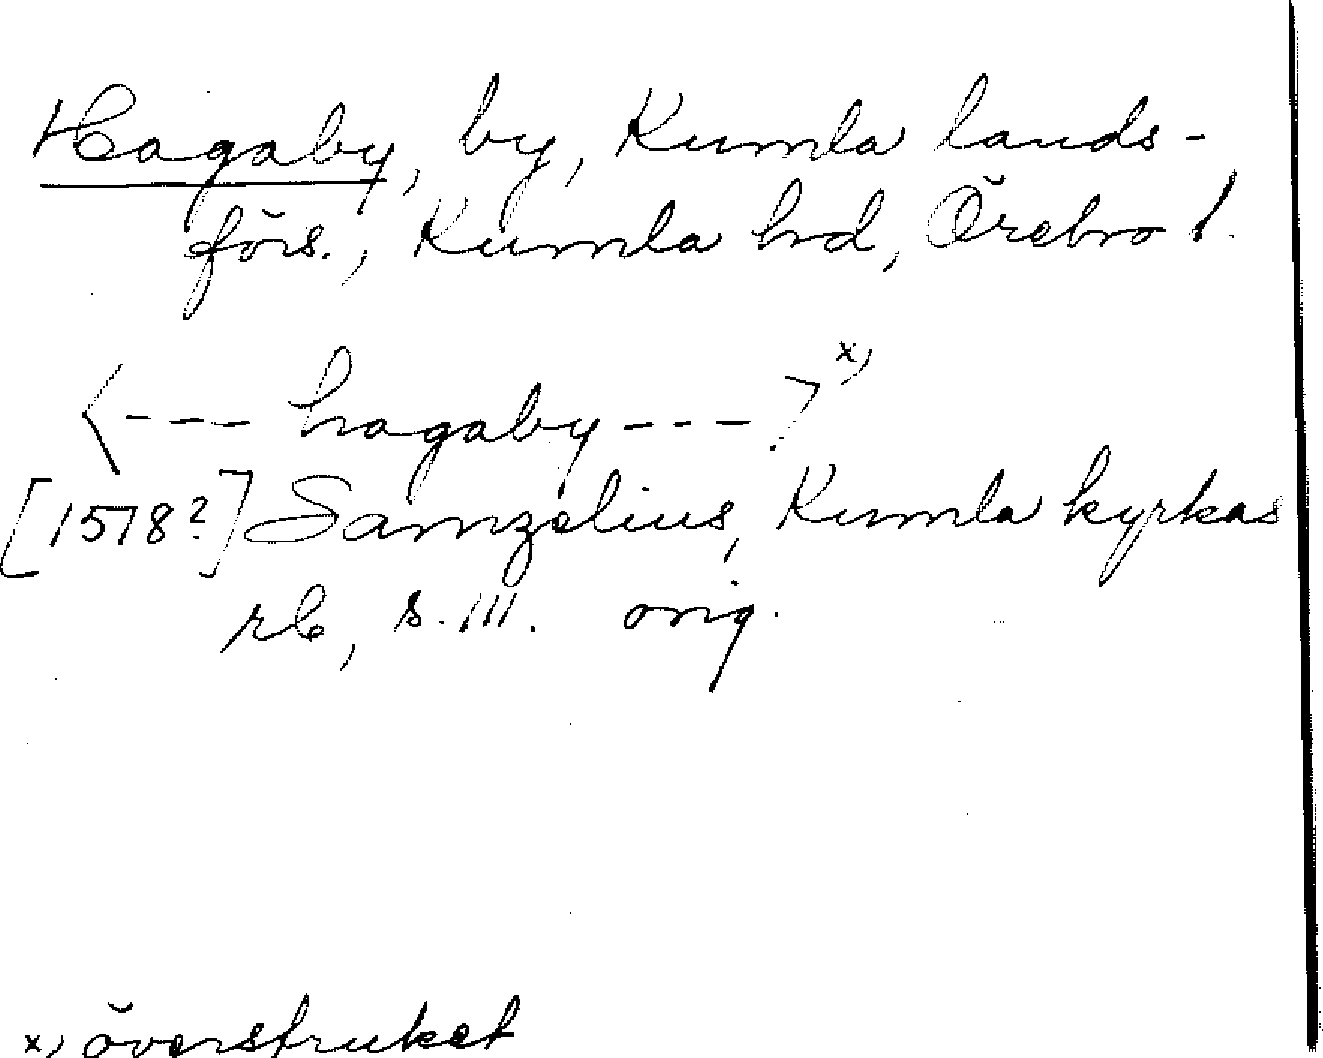 Hagaby, by, Kumla lands-
förs., Kumla hd, Örebro l.
<--- hagaby --->x)
[1578?] Samzelius, Kumla kyrkas
rb, s. 111. orig.
x) överstruket